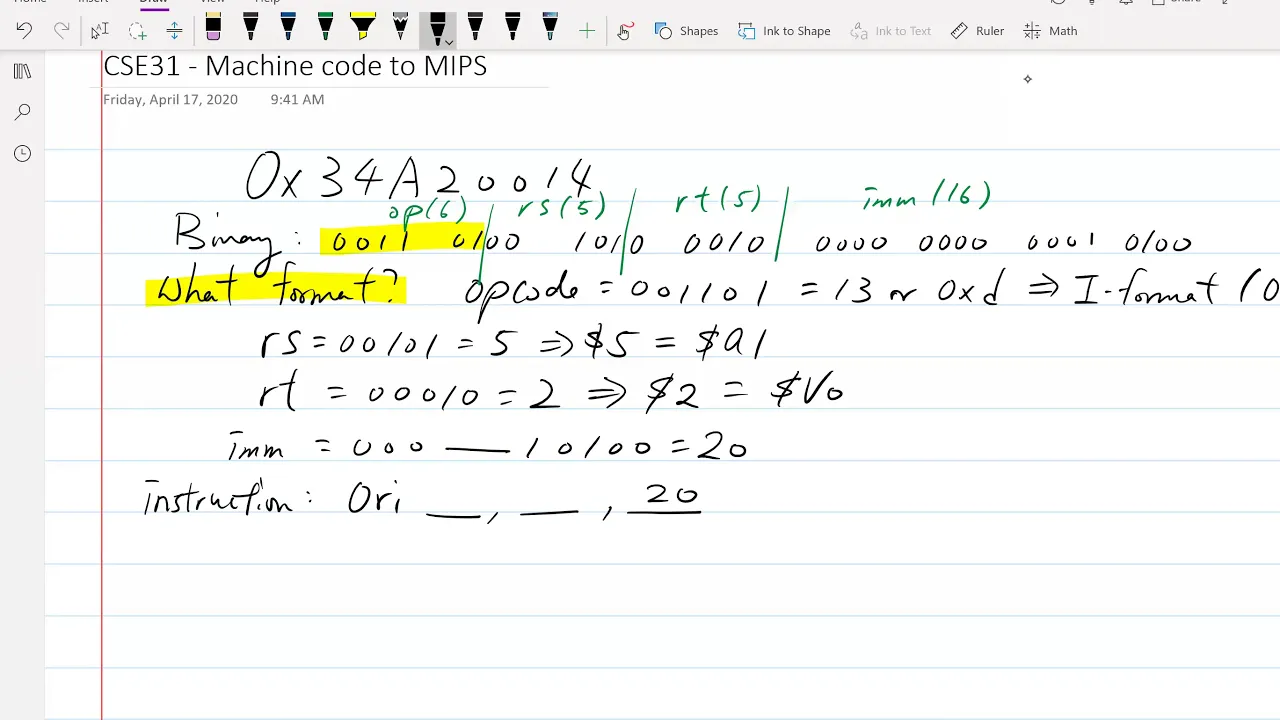 Home Insert Draw View Help Share
Shapes Ink to Shape Ink to Text Ruler Math
CSE31 - Machine code to MIPS
Friday, April 17, 2020 9:41 AM
0x34A20014
op(6) rs(5) rt(5) imm(16)
Binary: 0011 0100 1010 0010 0000 0000 0001 0100
What format? opcode = 001101 = 13 or 0xd ⇒ I-format (0
rs = 00101 = 5 ⇒ $5 = $a1
rt = 00010 = 2 ⇒ $2 = $v0
imm = 000 — 10100 = 20
instruction: Ori __, __, 20